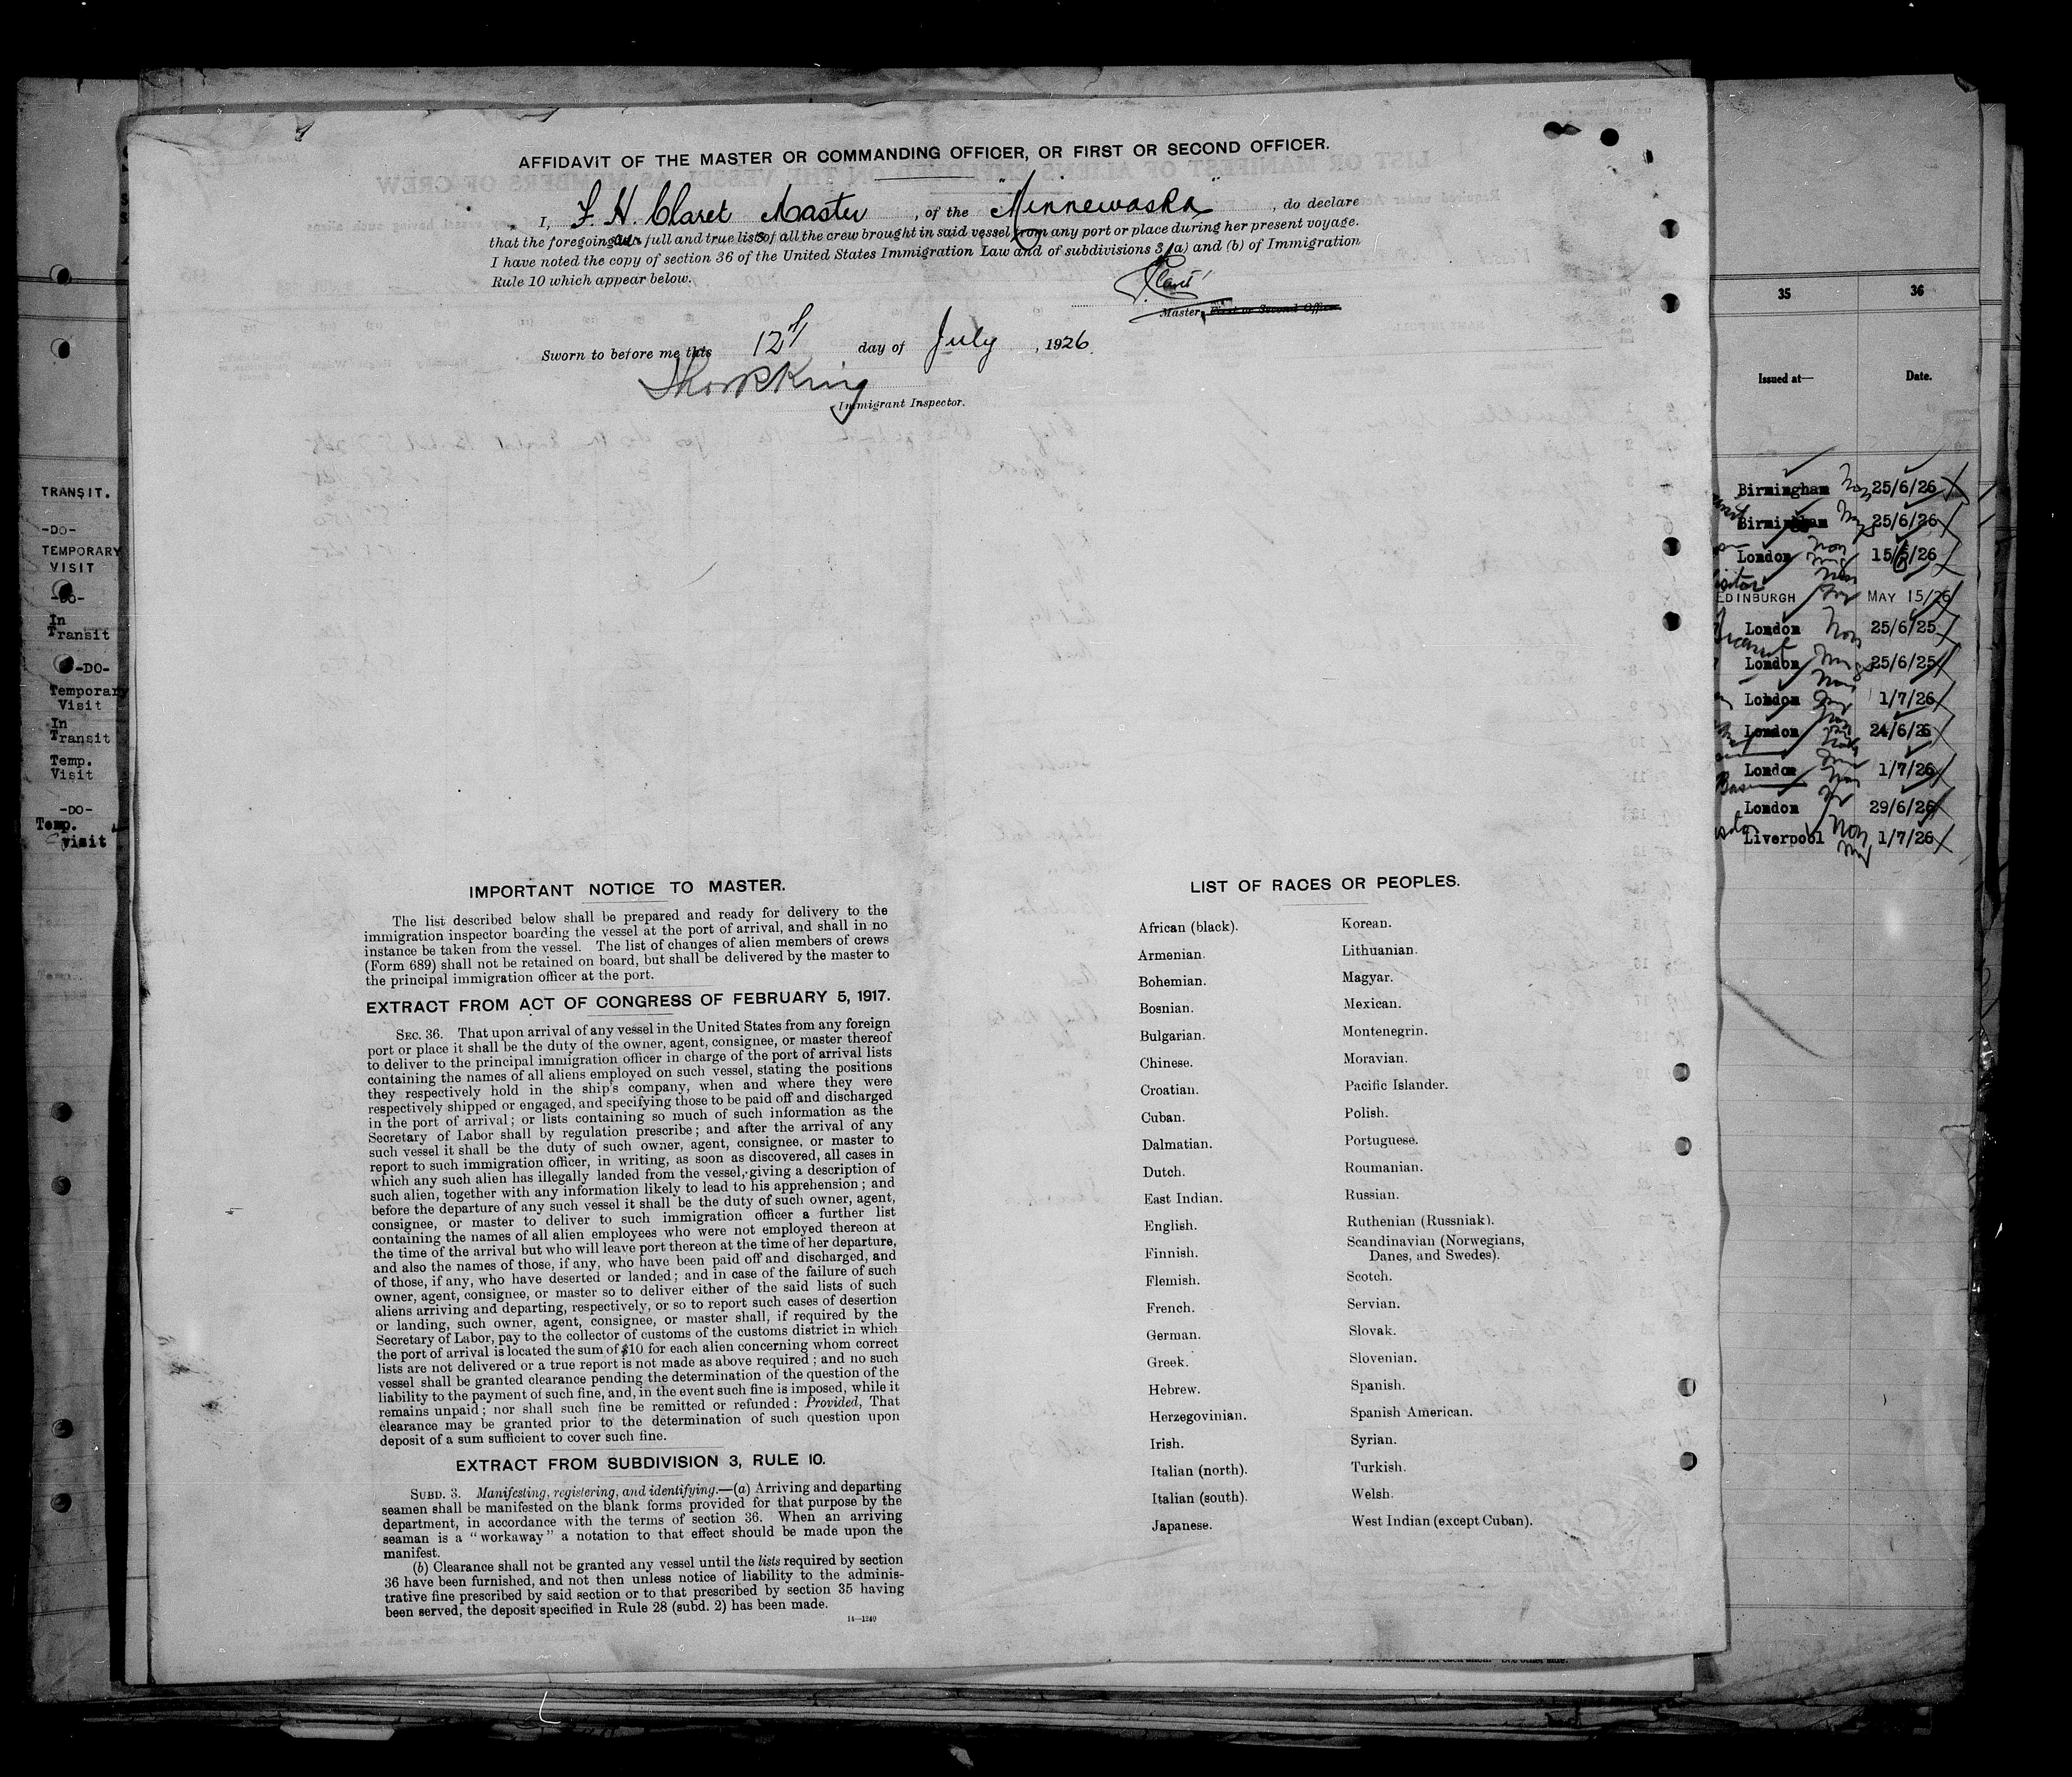 AFFIDAVIT OF THE MASTER OR COMMANDING OFFICER, OR FIRST OR SECOND OFFICER.
I, F. H. Claret Master, of the "Minnewaska", do declare
that the foregoing are full and true lists of all the crew brought in said vessel from any port or place during her present voyage.
I have noted the copy of section 36 of the United States Immigration Law and of subdivisions 3 (a) and (b) of Immigration
Rule 10 which appear below.
F Claret
Master, First or Second Officer.
Sworn to before me this 12th day of July, 1926.
Immigrant Inspector.
IMPORTANT NOTICE TO MASTER.
The list described below shall be prepared and ready for delivery to the
immigration inspector boarding the vessel at the port of arrival, and shall in no
instance be taken from the vessel. The list of changes of alien members of crews
(Form 689) shall not be retained on board, but shall be delivered by the master to
the principal immigration officer at the port.
EXTRACT FROM ACT OF CONGRESS OF FEBRUARY 5, 1917.
SEC. 36. That upon arrival of any vessel in the United States from any foreign
port or place it shall be the duty of the owner, agent, consignee, or master thereof
to deliver to the principal immigration officer in charge of the port of arrival lists
containing the names of all aliens employed on such vessel, stating the positions
they respectively hold in the ship's company, when and where they were
respectively shipped or engaged, and specifying those to be paid off and discharged
in the port of arrival; or lists containing so much of such information as the
Secretary of Labor shall by regulation prescribe; and after the arrival of any
such vessel it shall be the duty of such owner, agent, consignee, or master to
report to such immigration officer, in writing, as soon as discovered, all cases in
which any such alien has illegally landed from the vessel, giving a description of
such alien, together with any information likely to lead to his apprehension; and
before the departure of any such vessel it shall be the duty of such owner, agent,
consignee, or master to deliver to such immigration officer a further list
containing the names of all alien employees who were not employed thereon at
the time of the arrival but who will leave port thereon at the time of her departure,
and also the names of those, if any, who have been paid off and discharged, and
of those, if any, who have deserted or landed; and in case of the failure of such
owner, agent, consignee, or master so to deliver either of the said lists of such
aliens arriving and departing, respectively, or so to report such cases of desertion
or landing, such owner, agent, consignee, or master shall, if required by the
Secretary of Labor, pay to the collector of customs of the customs district in which
the port of arrival is located the sum of $10 for each alien concerning whom correct
lists are not delivered or a true report is not made as above required; and no such
vessel shall be granted clearance pending the determination of the question of the
liability to the payment of such fine, and, in the event such fine is imposed, while it
remains unpaid; nor shall such fine be remitted or refunded: Provided, That
clearance may be granted prior to the determination of such question upon
deposit of a sum sufficient to cover such fine.
EXTRACT FROM SUBDIVISION 3, RULE 10.
SUBD. 3. Manifesting, registering, and identifying.—(a) Arriving and departing
seamen shall be manifested on the blank forms provided for that purpose by the
department, in accordance with the terms of section 36. When an arriving
seaman is a "workaway" a notation to that effect should be made upon the
manifest.
(b) Clearance shall not be granted any vessel until the lists required by section
36 have been furnished, and not then unless notice of liability to the adminis-
trative fine prescribed by said section or to that prescribed by section 35 having
been served, the deposit specified in Rule 28 (subd. 2) has been made.
14—1240
LIST OF RACES OR PEOPLES.
African (black).
Armenian.
Bohemian.
Bosnian.
Bulgarian.
Chinese.
Croatian.
Cuban.
Dalmatian.
Dutch.
East Indian.
English.
Finnish.
Flemish.
French.
German.
Greek.
Hebrew.
Herzegovinian.
Irish.
Italian (north).
Italian (south).
Japanese.
Korean.
Lithuanian.
Magyar.
Mexican.
Montenegrin.
Moravian.
Pacific Islander.
Polish.
Portuguese.
Roumanian.
Russian.
Ruthenian (Russniak).
Scandinavian (Norwegians,
Danes, and Swedes).
Scotch.
Servian.
Slovak.
Slovenian.
Spanish.
Spanish American.
Syrian.
Turkish.
Welsh.
West Indian (except Cuban).
TRANSIT.
-DO-
TEMPORARY
VISIT
-DO-
In
Transit
-DO-
Temporary
Visit
In
Transit
Temp.
Visit
-DO-
Temp.
visit
35 36
Issued at— Date.
Birmingham 25/6/26
Birmingham 25/6/26
London 15/6/26
EDINBURGH MAY 15/26
London 25/6/25
London 25/6/25
London 1/7/26
London 24/6/26
London 1/7/26
London 29/6/26
Liverpool 1/7/26